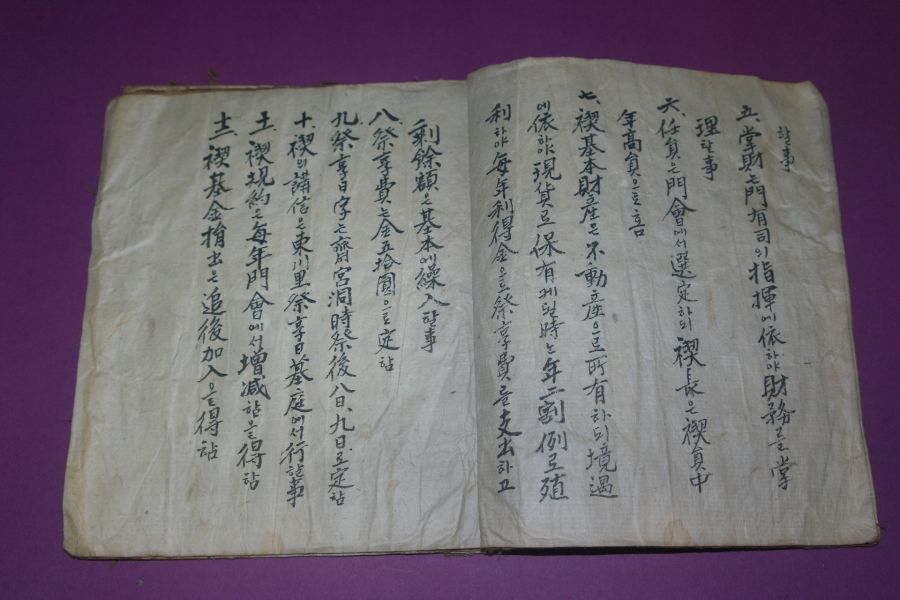 할 事
五、掌財는 門有司의 指揮에 依하야 財務를 掌
理할 事
六、任員은 門會에서 選定하되 禊長은 禊員中
年高員으로 홈
七、禊基本財産은 不動産으로 所有하되 境遇
에 依하야 現貨로 保有게 될 時는 年二割例로 殖
利하야 每年利得金으로 祭享費를 支出하고
剩餘額은 基本에 繰入할 事
八、祭享費는 金五拾圓으로 定함
九、祭享日字는 齋宮洞時祭後八日、九日로 定함
十、禊의 講信은 東川里祭享日墓庭에서 行할 事
十一、禊規約은 每年門會에서 增減함을 得함
十二、禊基金捐出은 追後加入으를 得함